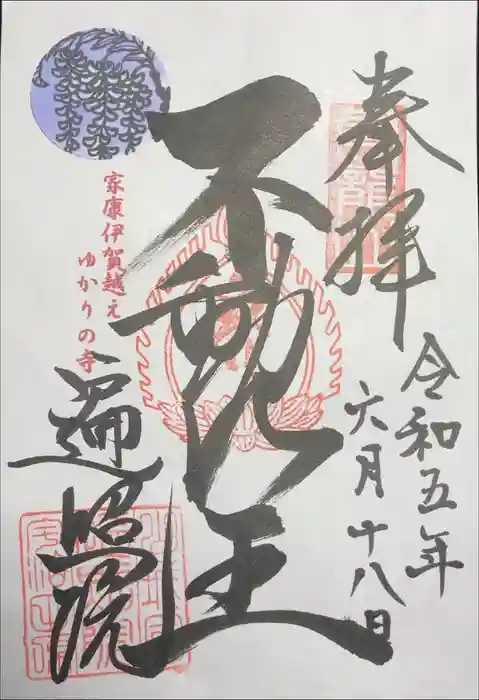 奉拝
令和五年
六月十八日
不動明王
家康伊賀越え
ゆかりの寺
遍照院